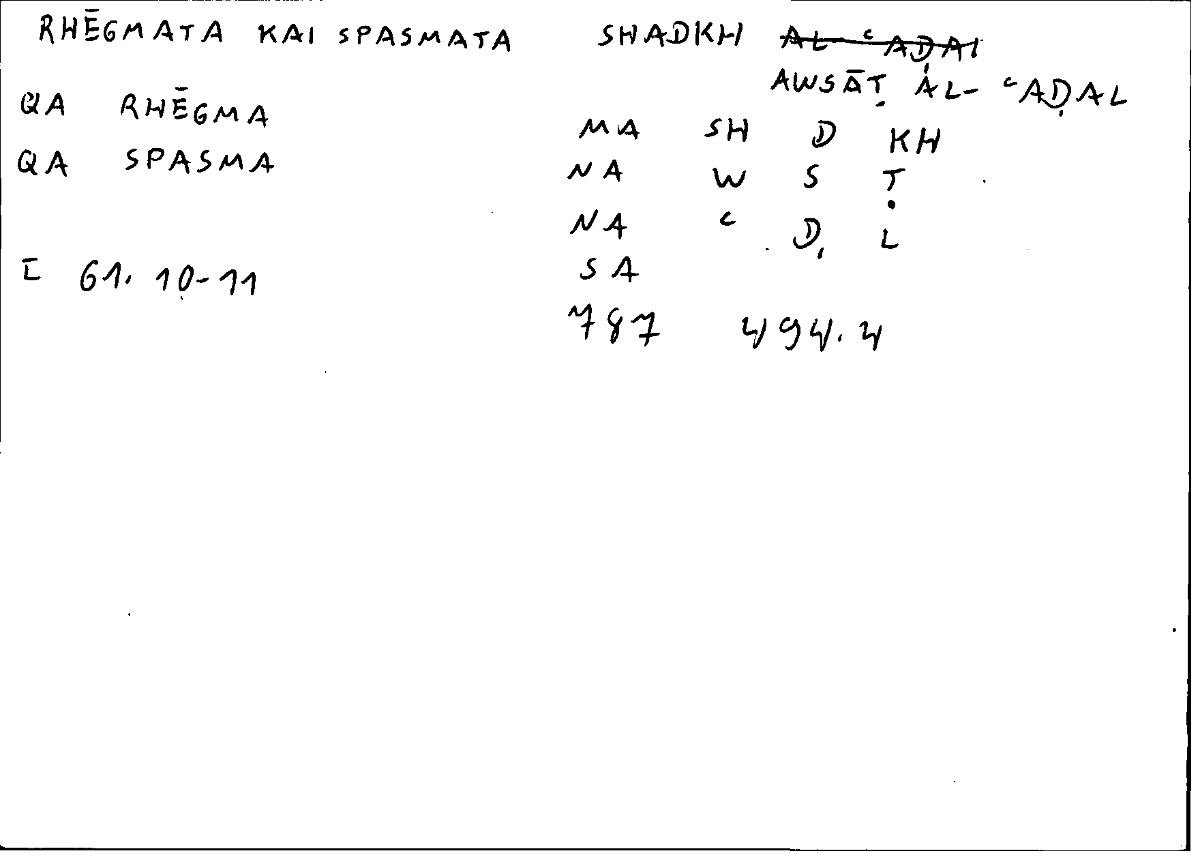 RHĒGMATA KAI SPASMATA SHADKH ~~AL-ʿAḌAL~~
AWSĀṬ AL-ʿAḌAL
QA RHĒGMA
MA SH D KH
QA SPASMA
NA W S Ṭ
NA ʿ Ḍ L
I 61. 10-11
SA
787 494.4